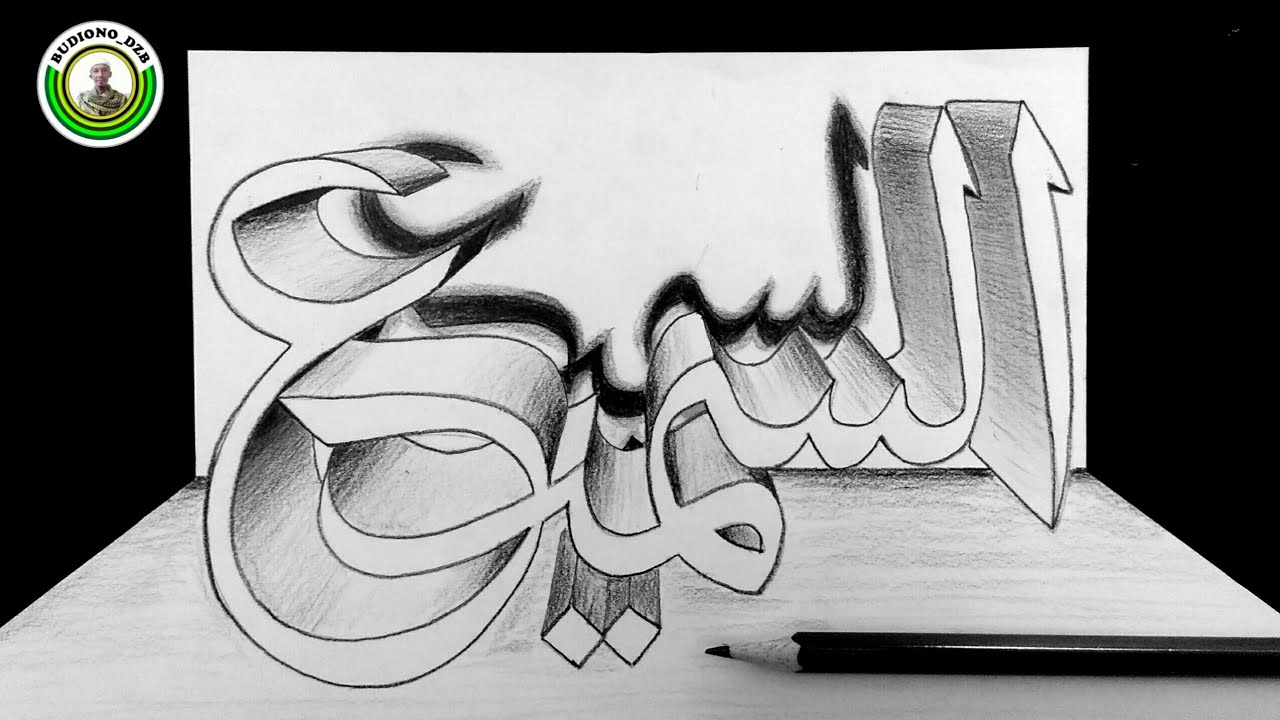 BUDIONO_DZB
السميع